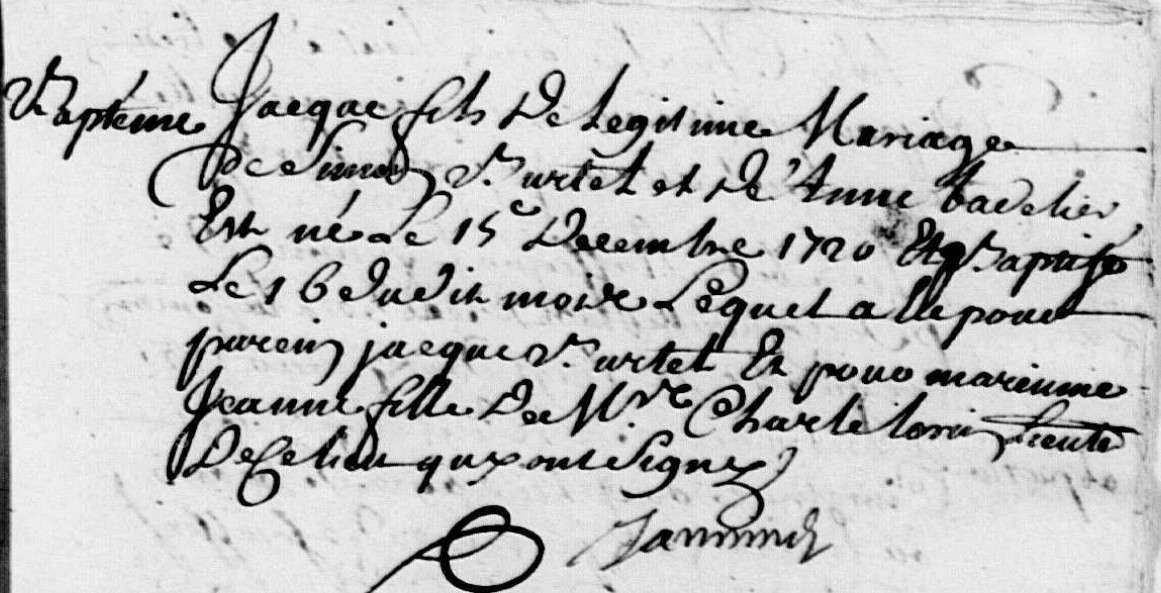 Baptéme Jacque fils De legitime Mariage
De Simon Burtet et De Anne
Est né Le 15e Decembre 1720 Et Baptisé
Le 16 dudit mois Lequel a Eu pour
parein jacque Burtet Et pour mareinne
Jeanne fille De Mre Charle
De Ce lieu qui ont Signez